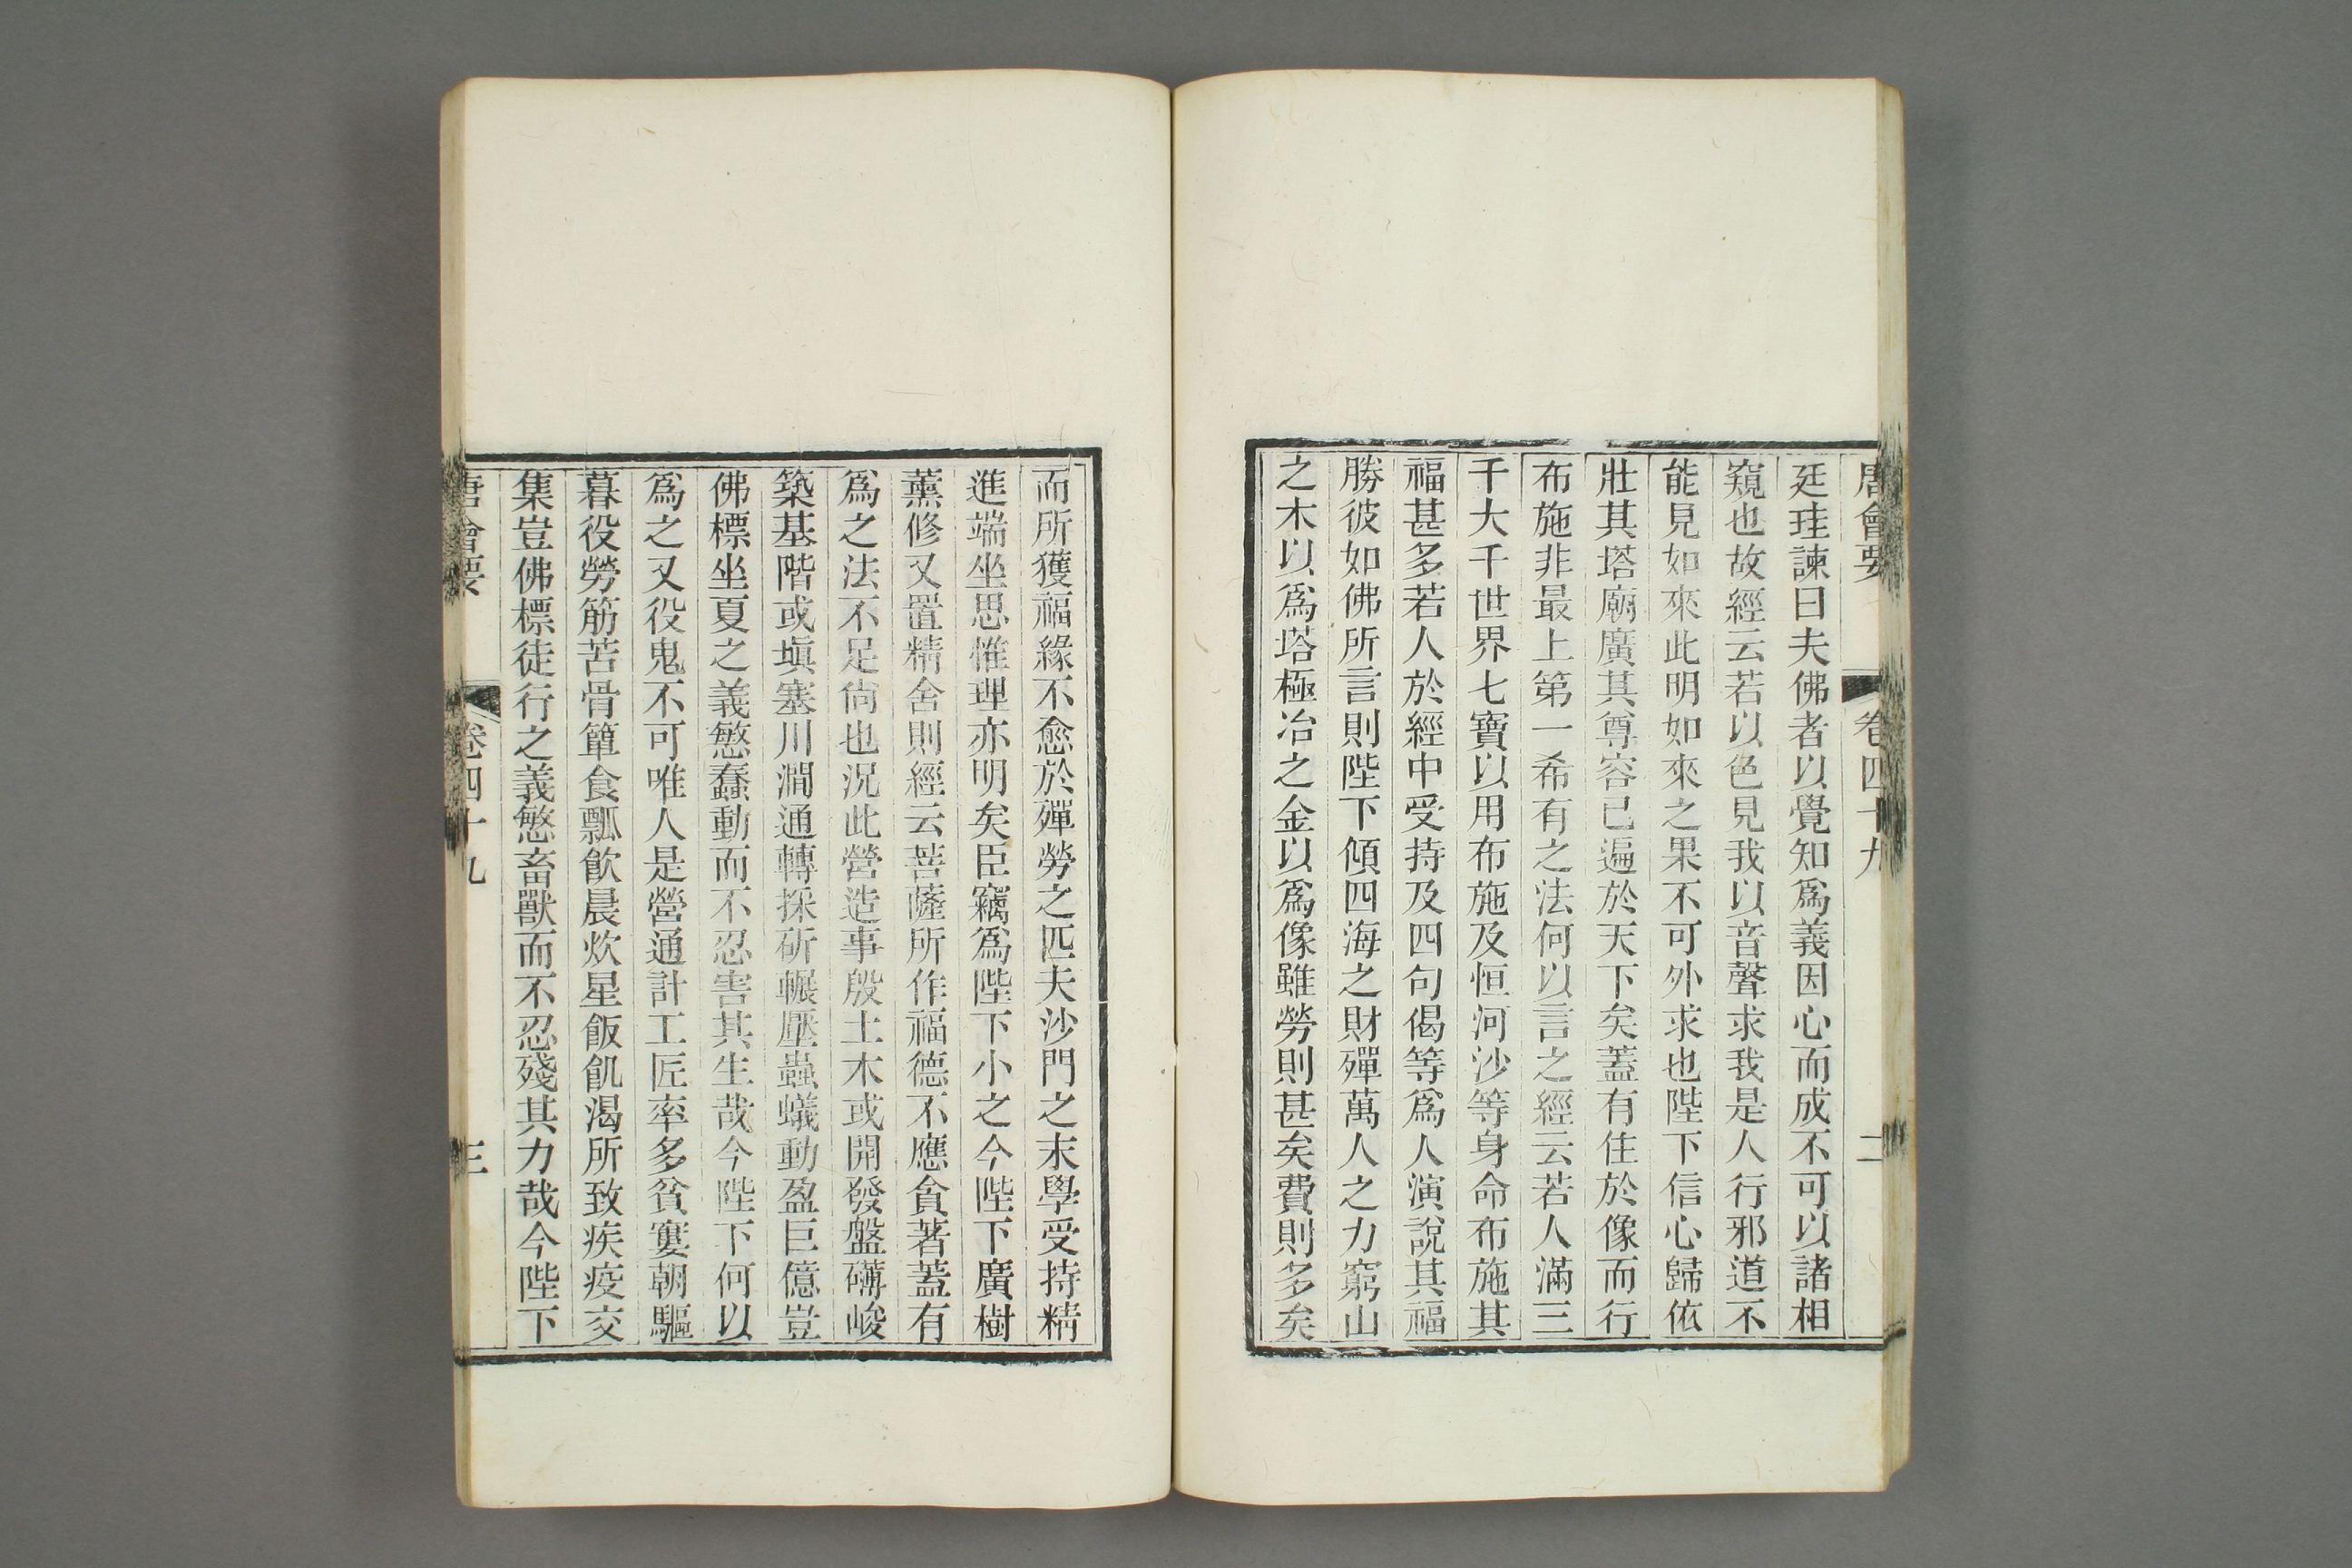 唐會要 卷四十九 二
廷珪諫曰夫佛者以覺知爲義因心而成不可以諸相
窺也故經云若以色見我以音聲求我是人行邪道不
能見如來此明如來之果不可外求也陛下信心歸依
壯其塔廟廣其尊容已遍於天下矣蓋有住於像而行
布施非最上第一希有之法何以言之經云若人滿三
千大千世界七寶以用布施及恒河沙等身命布施其
福甚多若人於經中受持及四句偈等爲人演說其福
勝彼如佛所言則陛下傾四海之財殫萬人之力窮山
之木以爲塔極冶之金以爲像雖勞則甚矣費則多矣
而所獲福緣不愈於殫勞之匹夫沙門之末學受持精
進端坐思惟理亦明矣臣竊爲陛下小之今陛下廣樹
薰修又置精舍則經云菩薩所作福德不應貪著蓋有
爲之法不足尙也況此營造事殷土木或開發盤礴峻
築基階或塡塞川澗通轉採斫輾壓蟲蟻動盈巨億豈
佛標坐夏之義愍蠢動而不忍害其生哉今陛下何以
爲之又役鬼不可唯人是營通計工匠率多貧窶朝驅
暮役勞筋苦骨簞食瓢飮晨炊星飯飢渴所致疾疫交
集豈佛標徒行之義愍畜獸而不忍殘其力哉今陛下
唐會要 卷四十九 三